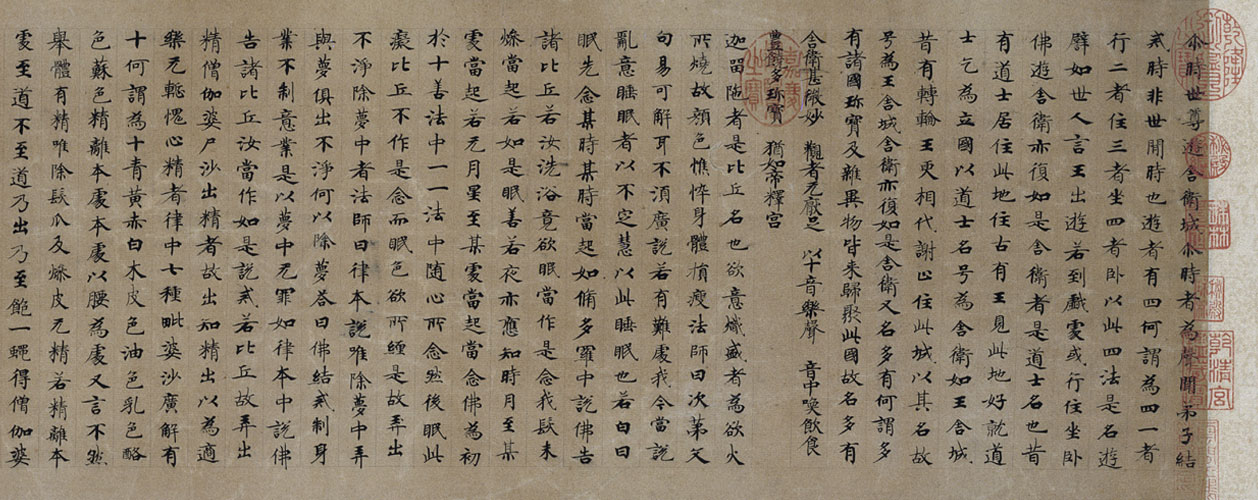 尒時世尊遊舍衛城尒時者為聲聞弟子結
戒時非世間時也遊者有四何謂為四一者
行二者住三者坐四者卧以此四法是名遊
譬如世人言王出遊若到戲處或行住坐卧
佛遊舍衛亦復如是舍衛者是道士名也昔
有道士居住此地住古有王見此地好就道
士乞為立國以道士名号為舍衛如王舍城
昔有轉輪王更相代謝止住此城以其名故
号為王舍城舍衛亦復如是舍衛又名多有何謂多
有諸國珎寶及雜異物皆来歸聚此國故名多有
舍衛甚微妙 觀者无厭足 以十音樂聲 音中喚飲食
豊饒多珎寶 猶如帝釋宮
迦留陁者是比丘名也欲意熾盛者為欲火
所燒故顔色憔悴身體損瘦法師曰次第文
句易可解耳不湏廣說若有難處我今當說
亂意睡眠者以不定慧以此睡眠也若白曰
眠先念某時某時當起如脩多羅中說佛告
諸比丘若汝洗浴竟欲眠當作是念我髮未
燥當起若如是眠善若夜亦應知時月至某
處當起若无月星至某處當起當念佛為初
於十善法中一一法中随心所念然後眠此
癡比丘不作是念而眠色欲所纏是故弄出
不淨除夢中者法師曰律本說唯除夢中弄
與夢俱出不淨何以除夢荅曰佛結戒制身
業不制意業是以夢中无罪如律本中說佛
告諸比丘汝當作如是說戒若比丘故弄出
精僧伽婆尸沙出精者故出知精出以為適
樂无輕愧心精者律中七種毗婆沙廣解有
十何謂為十青黄赤白木皮色油色乳色酪
色蘇色精離本處本處以腰為處又言不然
舉體有精唯除髮爪及燥皮无精若精離本
處至道不至道乃出乃至飽一蠅得僧伽婆
乾清宮